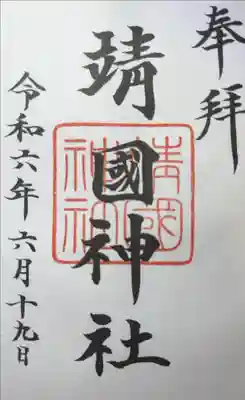 奉拝
靖國神社
靖國
神社
令和六年六月十九日